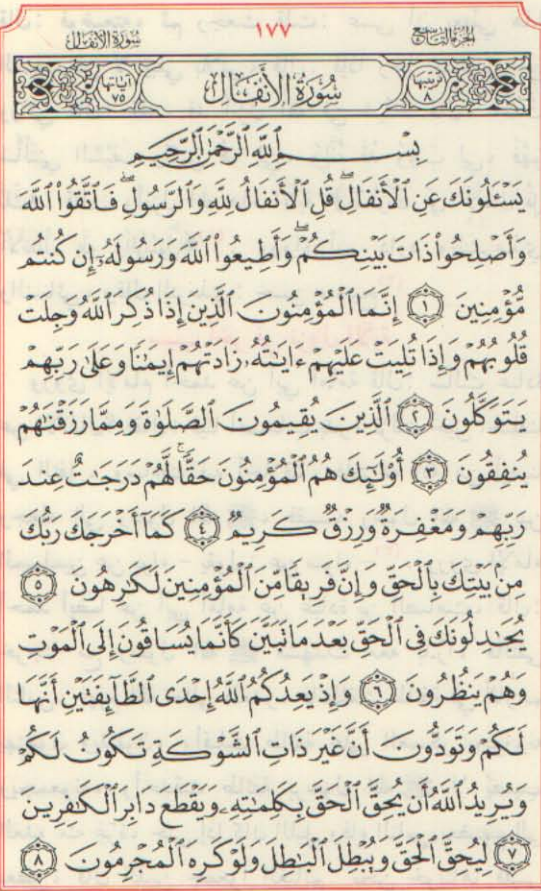 ١٧٧
الجزء التاسع
سورة الأنفال
ترتيبها ٨
سُورَةُ الأَنْفَال
آياتها ٧٥
بِسْمِ ٱللَّهِ ٱلرَّحْمَٰنِ ٱلرَّحِيمِ
يَسْـَٔلُونَكَ عَنِ ٱلْأَنفَالِۖ قُلِ ٱلْأَنفَالُ لِلَّهِ وَٱلرَّسُولِۖ فَٱتَّقُوا۟ ٱللَّهَ
وَأَصْلِحُوا۟ ذَاتَ بَيْنِكُمْۖ وَأَطِيعُوا۟ ٱللَّهَ وَرَسُولَهُۥٓ إِن كُنتُم
مُّؤْمِنِينَ ﴿١﴾ إِنَّمَا ٱلْمُؤْمِنُونَ ٱلَّذِينَ إِذَا ذُكِرَ ٱللَّهُ وَجِلَتْ
قُلُوبُهُمْ وَإِذَا تُلِيَتْ عَلَيْهِمْ ءَايَٰتُهُۥ زَادَتْهُمْ إِيمَٰنًا وَعَلَىٰ رَبِّهِمْ
يَتَوَكَّلُونَ ﴿٢﴾ ٱلَّذِينَ يُقِيمُونَ ٱلصَّلَوٰةَ وَمِمَّا رَزَقْنَٰهُمْ
يُنفِقُونَ ﴿٣﴾ أُو۟لَٰٓئِكَ هُمُ ٱلْمُؤْمِنُونَ حَقًّاۚ لَّهُمْ دَرَجَٰتٌ عِندَ
رَبِّهِمْ وَمَغْفِرَةٌ وَرِزْقٌ كَرِيمٌ ﴿٤﴾ كَمَآ أَخْرَجَكَ رَبُّكَ
مِنۢ بَيْتِكَ بِٱلْحَقِّ وَإِنَّ فَرِيقًا مِّنَ ٱلْمُؤْمِنِينَ لَكَٰرِهُونَ ﴿٥﴾
يُجَٰدِلُونَكَ فِى ٱلْحَقِّ بَعْدَمَا تَبَيَّنَ كَأَنَّمَا يُسَاقُونَ إِلَى ٱلْمَوْتِ
وَهُمْ يَنظُرُونَ ﴿٦﴾ وَإِذْ يَعِدُكُمُ ٱللَّهُ إِحْدَى ٱلطَّآئِفَتَيْنِ أَنَّهَا
لَكُمْ وَتَوَدُّونَ أَنَّ غَيْرَ ذَاتِ ٱلشَّوْكَةِ تَكُونُ لَكُمْ
وَيُرِيدُ ٱللَّهُ أَن يُحِقَّ ٱلْحَقَّ بِكَلِمَٰتِهِۦ وَيَقْطَعَ دَابِرَ ٱلْكَٰفِرِينَ
﴿٧﴾ لِيُحِقَّ ٱلْحَقَّ وَيُبْطِلَ ٱلْبَٰطِلَ وَلَوْ كَرِهَ ٱلْمُجْرِمُونَ ﴿٨﴾